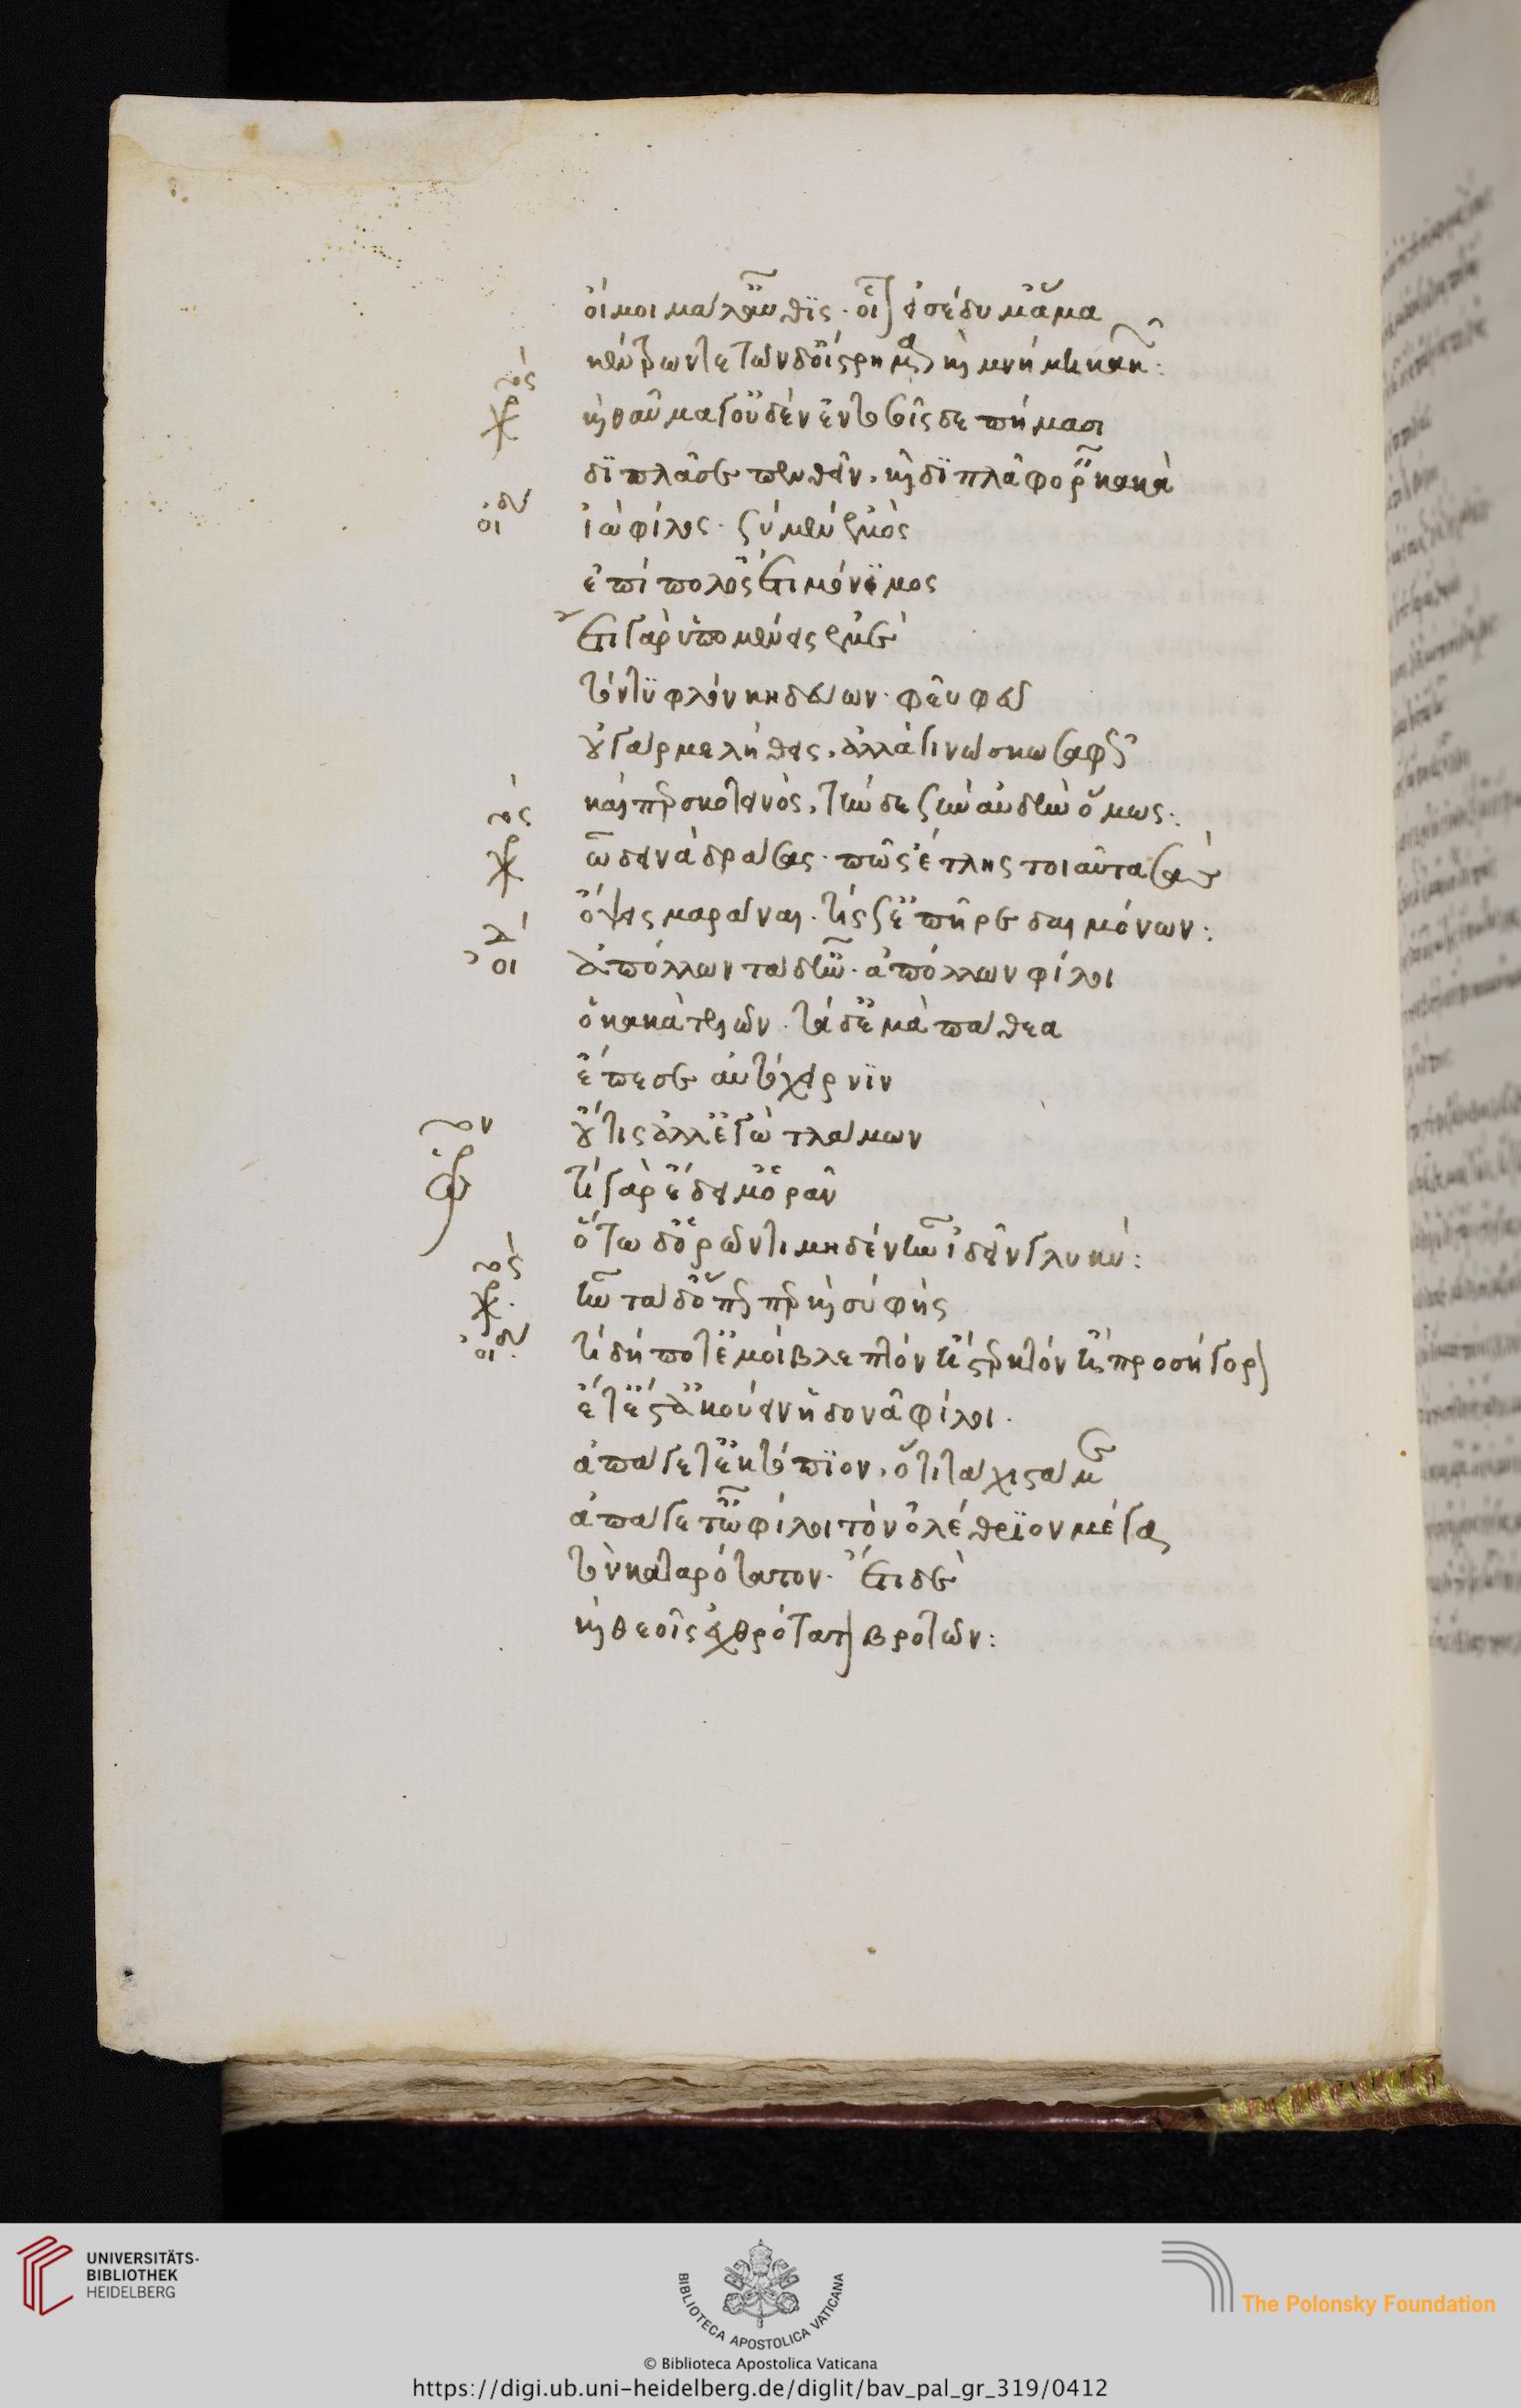 οἴμοι μάλ' αὖθις. οἷον εἰσέδυ μ' ἅμα
κέντρων τε τῶνδ' οἴστρημα καὶ μνήμη κακῶν:
χορός
καὶ θαῦμά γ' οὐδὲν ἐν τοσοῖσδε πήμασι
διπλᾶ σε πενθεῖν, καὶ διπλᾶ φορεῖν κακά
οἰδ
ἰὼ φίλος. σὺ μὲν ἐμὸς
ἐπίπολος ἔτι μόνιμος
ἔτι γὰρ ὑπομένεις ἐμὲ
τὸν τυφλὸν κηδεύων. φεῦ φεῦ
οὐ γάρ με λήθεις, ἀλλὰ γινώσκω σαφῶς
καίπερ σκοτεινός, τήν δε σὴν αὐδὴν ὅμως:
χορός
ὦ δεινὰ δράσας. πῶς ἔτλης τοιαῦτα σὰς
ὄψεις μαρᾶναι. τίς σ' ἐπῆρε δαιμόνων:
οἰδ
ἀπόλλων τάδ' ἦν. ἀπόλλων φίλοι
ὁ κακὰ τελῶν. τάδ' ἐμὰ πάθεα
ἔπεσε αὐτόχειρ νιν
οὔτις ἀλλ' ἐγὼ τλάμων
τί γὰρ ἔδει μ' ὁρᾶν
ὅτω δ' ὁρῶντι μηδὲν ἦν ἰδεῖν γλυκύ:
χορός
ἦν τάδ' ὅπωσπερ καὶ σὺ φῄς
οἰδ
τί δήποτ' ἐμοὶ βλεπτὸν τί στερκτὸν τί προσήγορον
ἔτ' ἔστ' ἀκούειν ἡδονᾷ φίλοι.
ἀπάγετ' ἐκτόπιον, ὅτι τάχιστά με
ἀπάγετ' ὦ φίλοι τὸν ὀλέθριον μέγαν
τὸν καταρότατον. ἔτι δὲ
καὶ θεοῖς ἐχθρότατον βροτῶν:
UNIVERSITÄTS-
BIBLIOTHEK
HEIDELBERG
BIBLIOTECA APOSTOLICA VATICANA
The Polonsky Foundation
© Biblioteca Apostolica Vaticana
https://digi.ub.uni-heidelberg.de/diglit/bav_pal_gr_319/0412